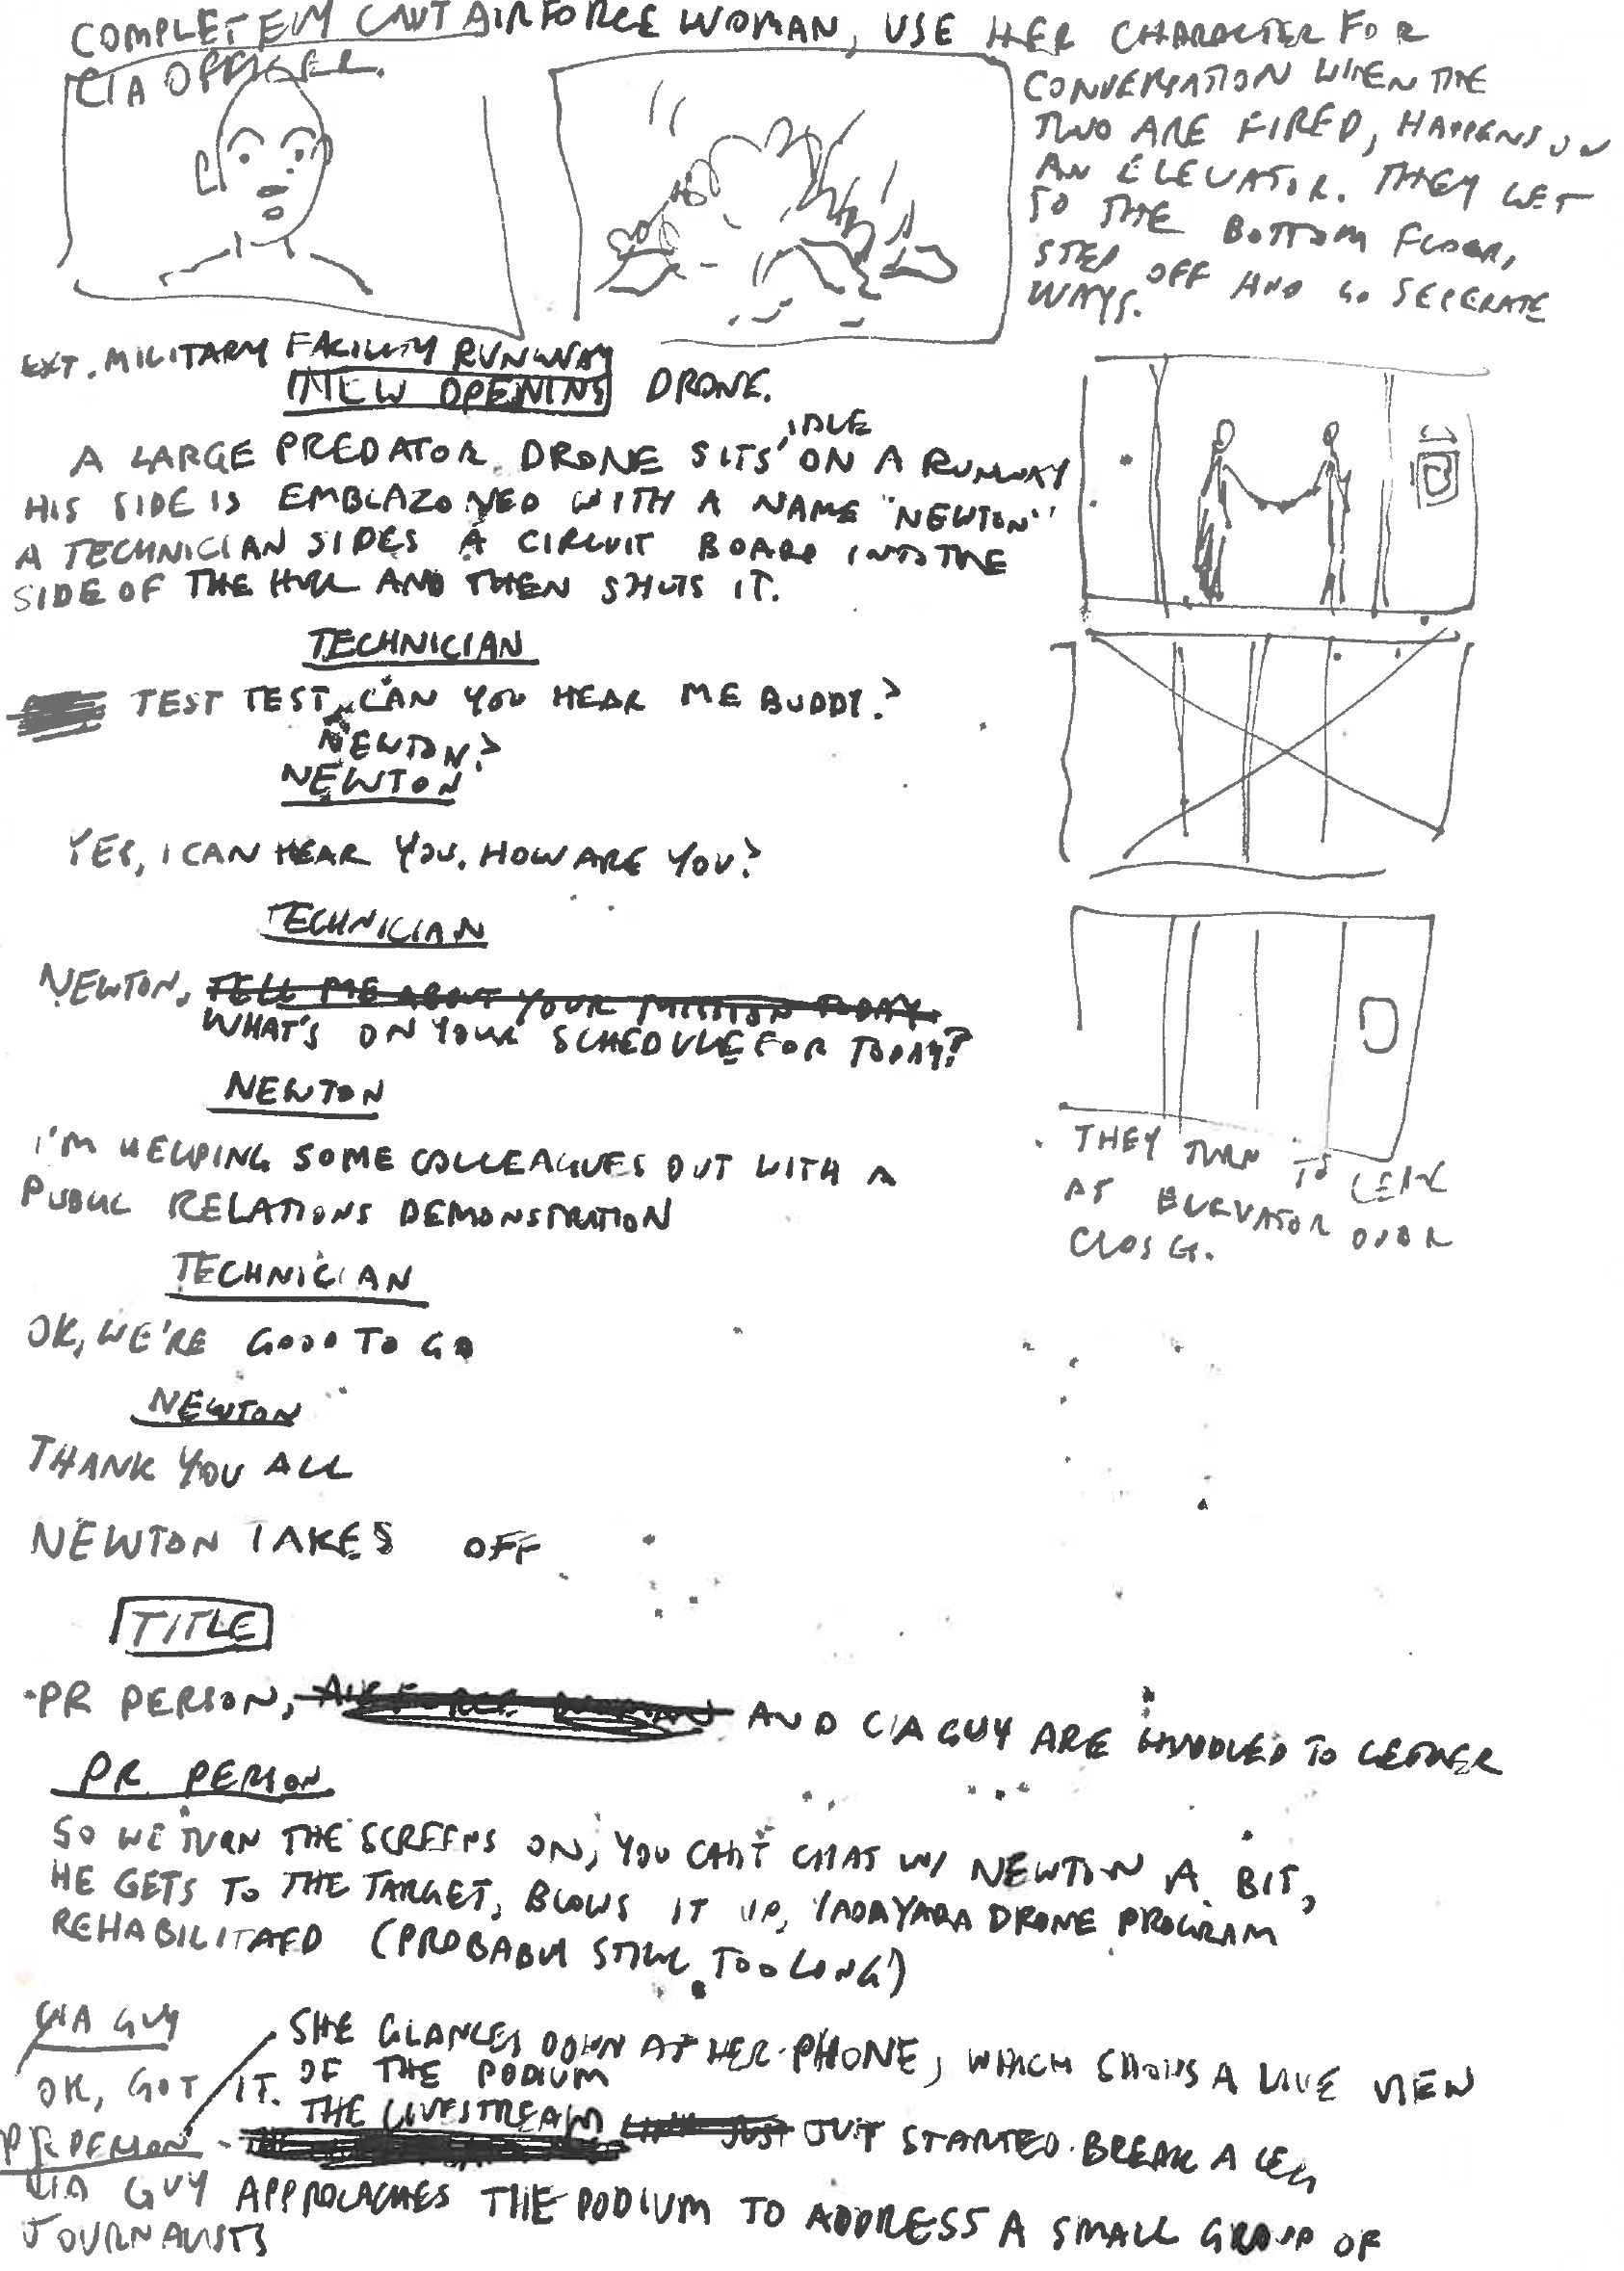 COMPLETELY CUT AIR FORCE WOMAN, USE HER CHARACTER FOR
CIA OFFICER.
CONVERSATION WHEN THE
TWO ARE FIRED, HAPPENS ON
AN ELEVATOR. THEY GET
TO THE BOTTOM FLOOR,
STEP OFF AND GO SEPERATE
WAYS.
EXT. MILITARY FACILITY RUNWAY
NEW OPENING DRONE.
A LARGE PREDATOR DRONE SITS IDLE ON A RUNWAY
HIS SIDE IS EMBLAZONED WITH A NAME "NEWTON"
A TECHNICIAN SIDES A CIRCUIT BOARD INTO THE
SIDE OF THE HULL AND THEN SHUTS IT.
TECHNICIAN
TEST TEST, CAN YOU HEAR ME BUDDY?
NEWTON?
NEWTON
YES, I CAN HEAR YOU. HOW ARE YOU?
TECHNICIAN
NEWTON, TELL ME ABOUT YOUR MISSION TODAY.
WHAT'S ON YOUR SCHEDULE FOR TODAY?
NEWTON
I'M HELPING SOME COLLEAGUES OUT WITH A
PUBLIC RELATIONS DEMONSTRATION
TECHNICIAN
OK, WE'RE GOOD TO GO
NEWTON
THANK YOU ALL
NEWTON TAKES OFF
THEY TURN TO LOOK
AT ELEVATOR DOOR
CLOSE.
TITLE
PR PERSON, AIR FORCE WOMAN AND CIA GUY ARE HUDDLED TOGETHER
PR PERSON
SO WE TURN THE SCREENS ON, YOU CHAT W/ NEWTON A BIT,
HE GETS TO THE TARGET, BLOWS IT UP, YADA YADA DRONE PROGRAM
REHABILITAED (PROBABLY STILL TOO LONG)
CIA GUY
OK, GOT IT.
SHE GLANCES DOWN AT HER PHONE, WHICH SHOWS A LIVE VIEW
OF THE PODIUM
PR PERSON - THE LIVESTREAM JUST JUST STARTED. BREAK A LEG
CIA GUY APPROACHES THE PODIUM TO ADDRESS A SMALL GROUP OF
JOURNALISTS